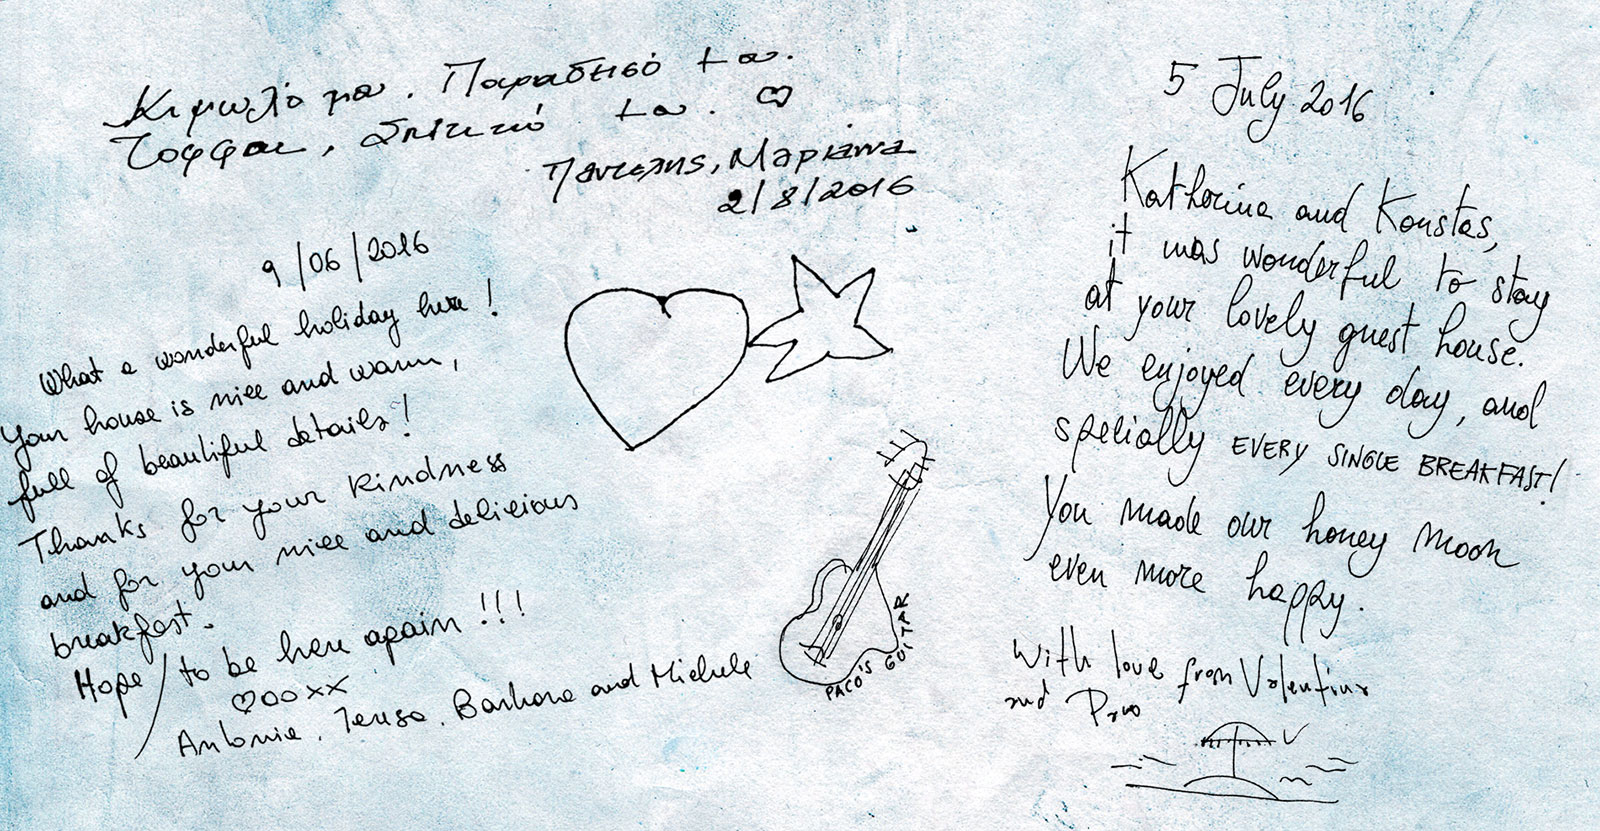 Κιμωλία μου. Παραδεισό του.
Τοφφαι, σπιτικό του. ♡
Παντελης, Μαριάννα
2/8/2016
9/06/2016
What a wonderful holiday here!
Your house is nice and warm,
full of beautiful details!
Thanks for your kindness
and for your nice and delicious
breakfast.
Hope / to be here again!!!
♡ooxx
Antonia, Teresa, Barbara and Michele
PACO'S GUITAR
5 July 2016
Katherina and Konstas,
it was wonderful to stay
at your lovely guest house.
We enjoyed every day, and
specially EVERY SINGLE BREAKFAST!
You made our honey moon
even more happy.
With love from Valentina
and